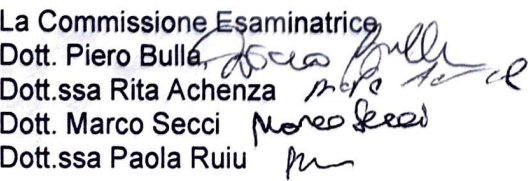 La Commissione Esaminatrice
Dott. Piero Bulla,
Dott.ssa Rita Achenza
Dott. Marco Secci Marco Secci
Dott.ssa Paola Ruiu